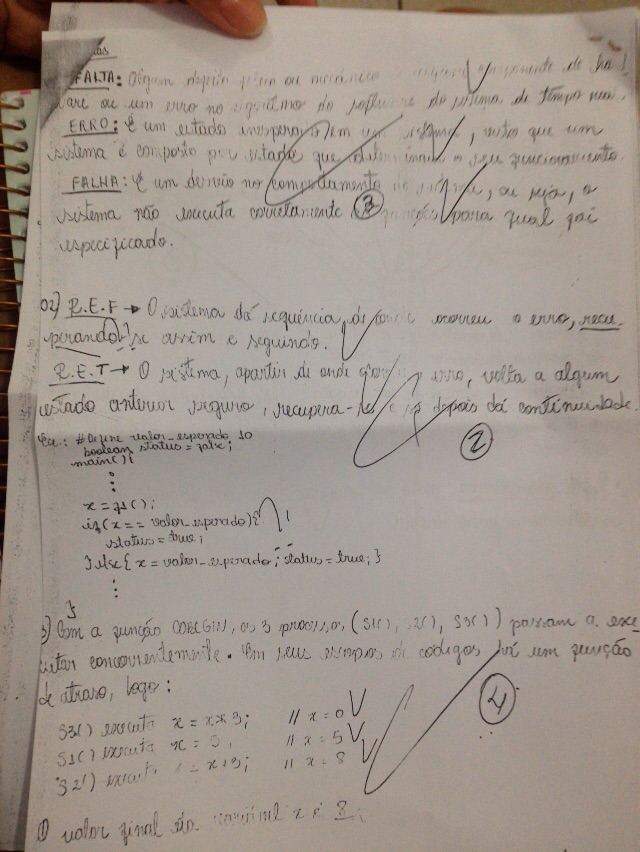 FALTA: Algum defeito físico ou mecânico de componente de
ware ou um erro no algoritmo do software do sistema de tempo real.
ERRO: É um estado inesperado em um sistema, visto que um
sistema é composto por estados que determinam o seu funcionamento.
FALHA: É um desvio no comportamento do sistema, ou seja, o
sistema não executa corretamente funções para qual foi
especificado.
3
02) R.E.F → O sistema dá sequência, de onde ocorreu o erro, recu-
perando-se assim e seguindo.
R.E.T → O sistema, apartir de onde o erro, volta a algum
estado anterior seguro, recupera-se e depois dá continuidade.
2
Ex: #Define valor_esperado 10
boolean status = false;
main(){
x = f1();
if(x == valor_esperado){
status = true;
}else{ x = valor_esperado; status = true; }
}
3) Com a função COBEGIN, os 3 processos, (S1(), S2(), S3()) passam a exe-
cutar concorrentemente. Em seus escopos de códigos há um função
de atraso, logo:
4
S3() executa x = x*3; // x = 0
S1() executa x = 5; // x = 5
S2() executa = x+3; // x = 8
O valor final da variável x é 8.